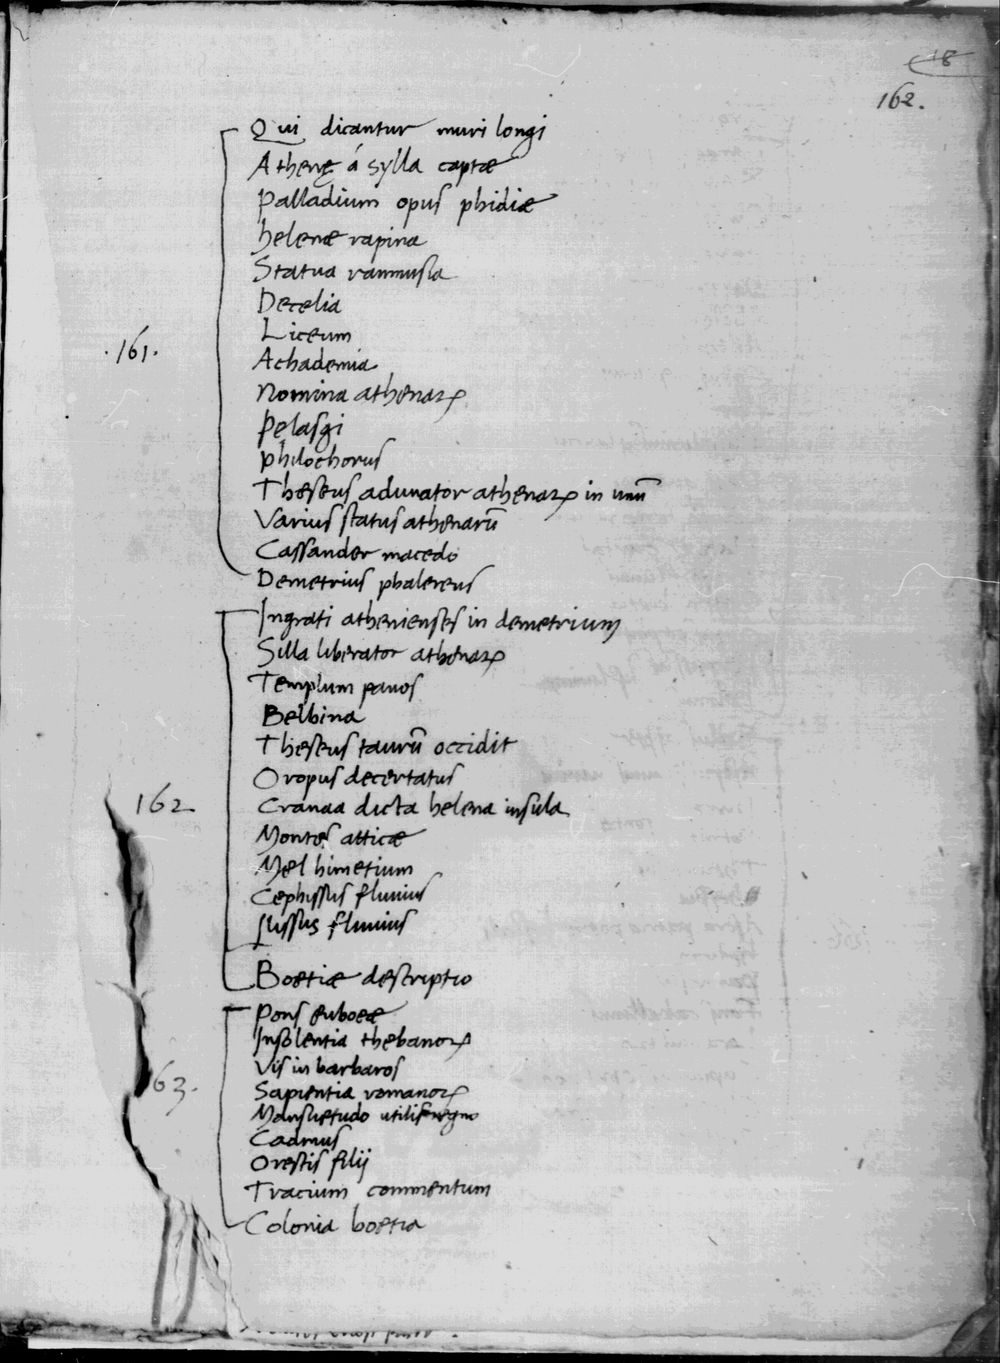 18
162.
Qui dicantur muri longi
Athenę á sylla captæ
Palladium opus phidiæ
helenæ rapina
Statua ramnusia
Decelia
Liceum
.161.
Achademia
Nomina athenaꝝ
Pelasgi
philochorus
Theseus adunator athenaꝝ in unū
Varius status athenarū
Cassander macedo
Demetrius phalereus
Ingrati athenienses in demetrium
Silla liberator athenaꝝ
Templum panos
Belbina
Theseus taurū occidit
Oropus decertatus
162
Cranaa dicta helena insula
Montes atticæ
Mel himetium
Cephissus fluvius
Ilissus fluvius
Boetiæ descriptio
Pons euboeæ
Insolentia thebanoꝝ
Vis in barbaros
63.
Sapientia romanoꝝ
Mansuetudo utilis regno
Cadmus
Orestis filij
Tracium commentum
Colonia boetia